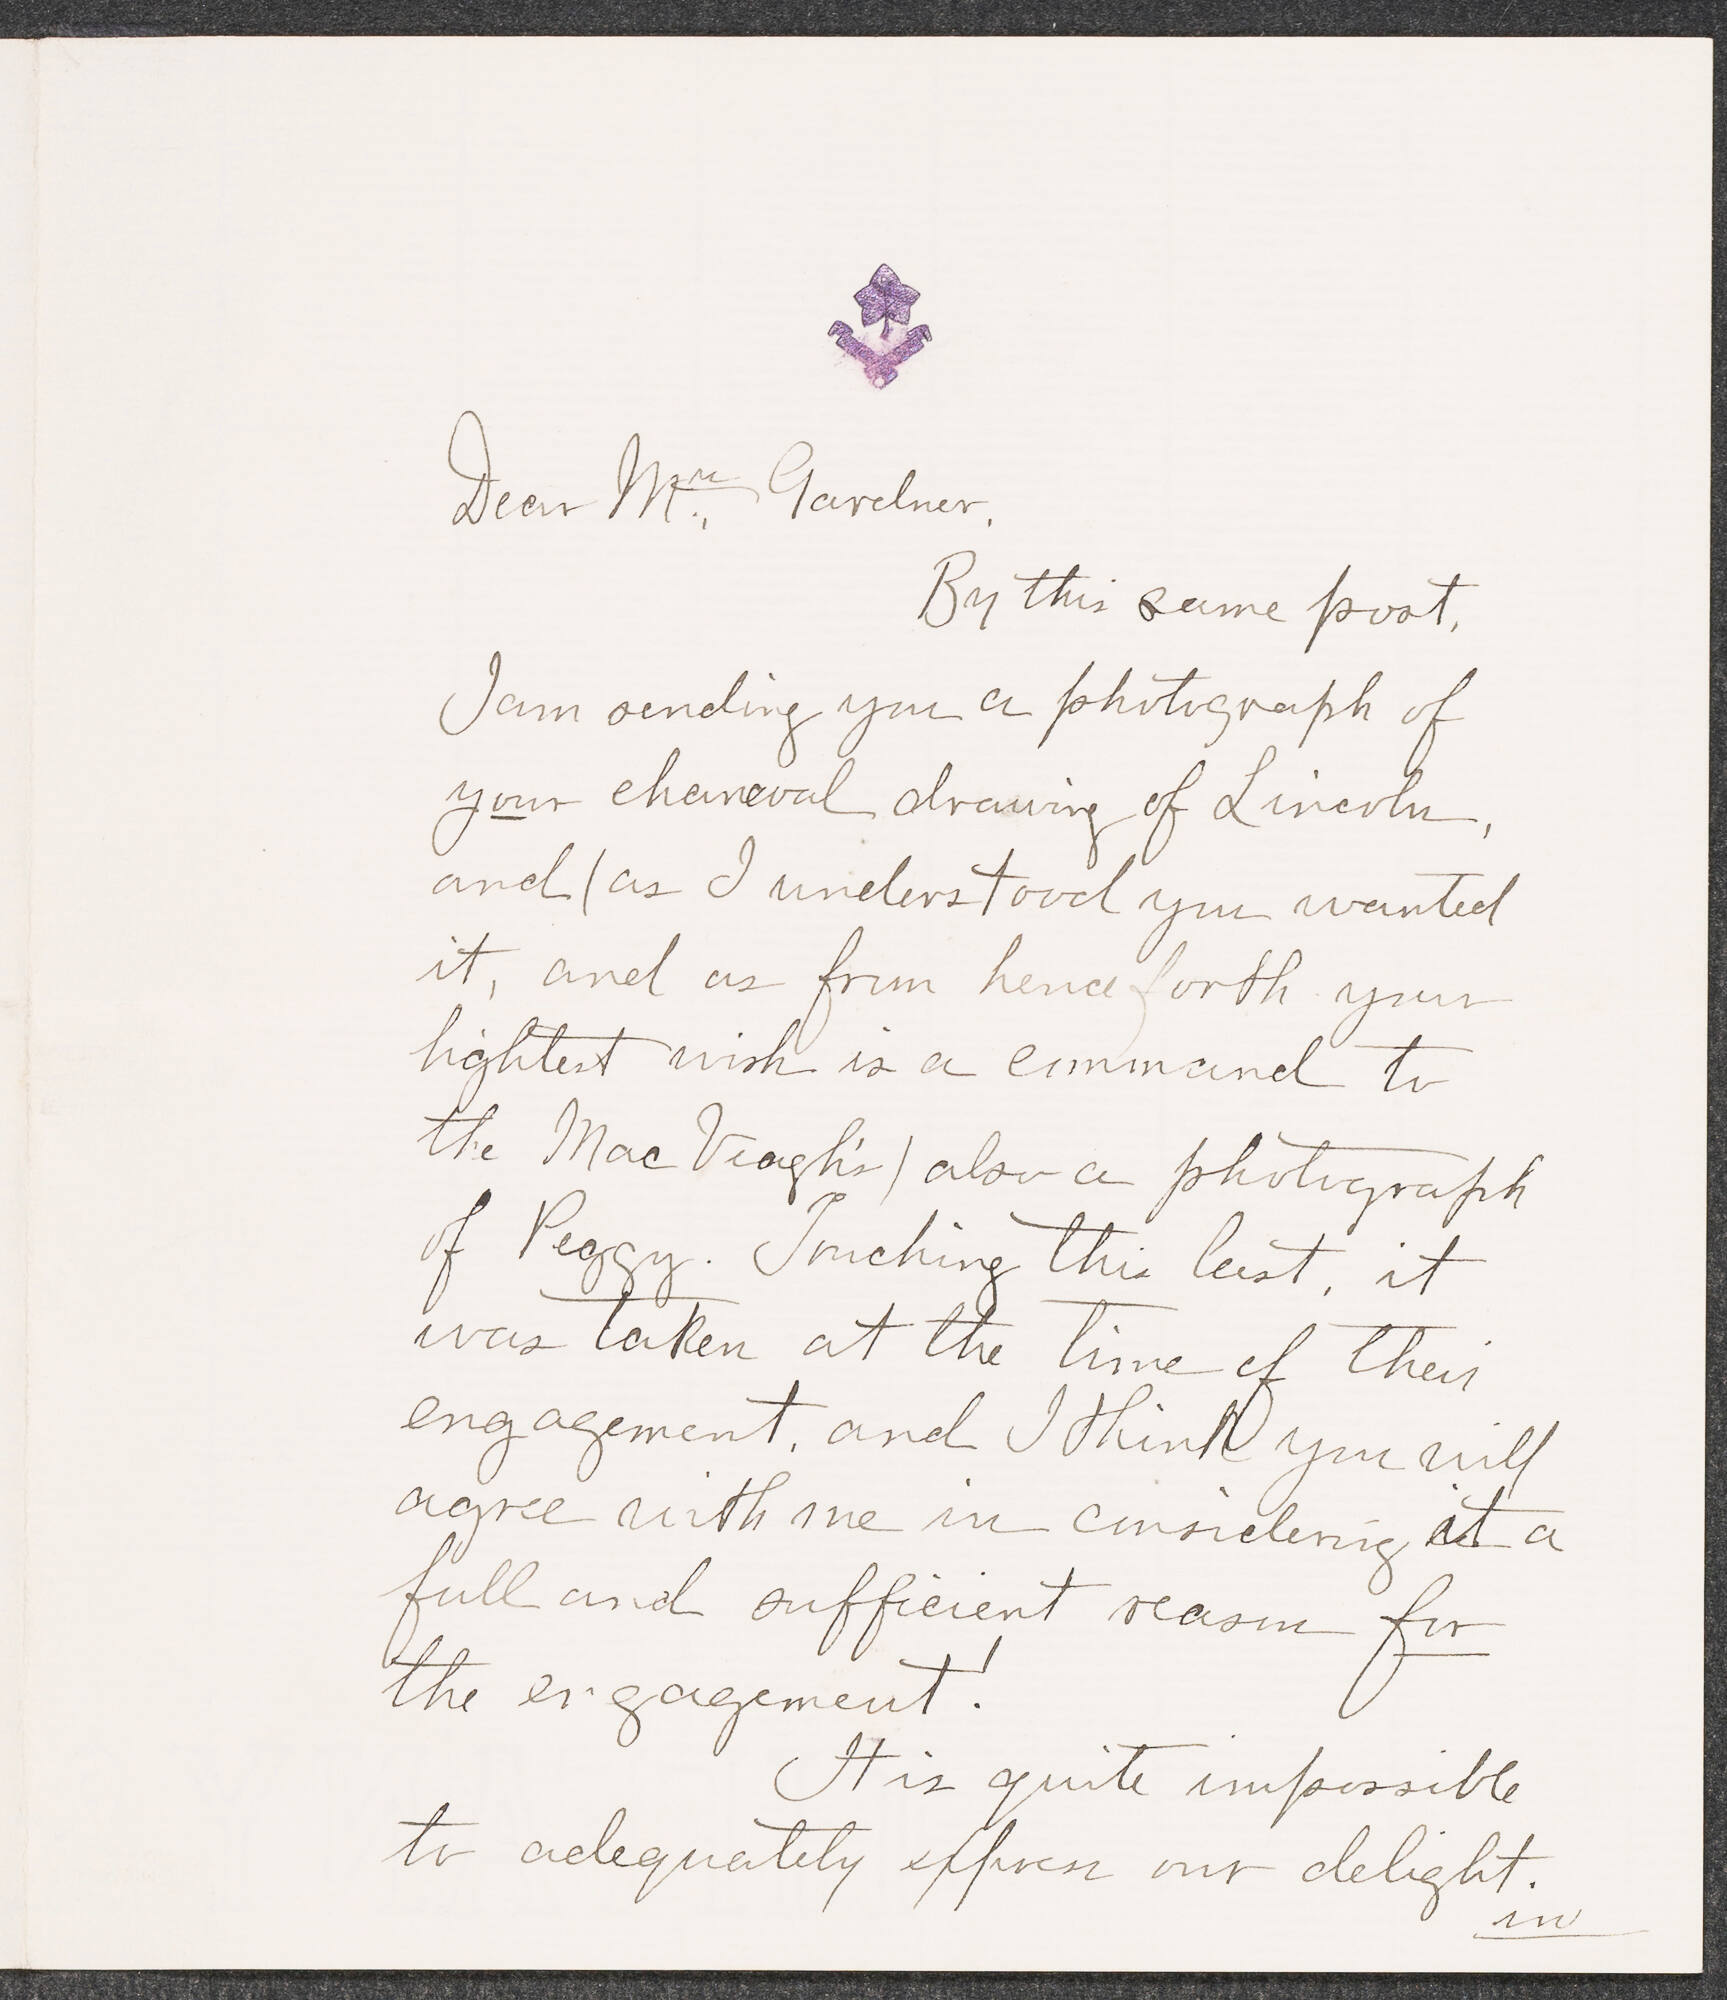 Dear Mrs. Gardner,
By this same post,
I am sending you a photograph of
your charcoal drawing of Lincoln,
and (as I understood you wanted
it, and as from henceforth your
lightest wish is a command to
the MacVeagh's) also a photograph
of Peggy. Touching this last, it
was taken at the time of their
engagement, and I think you will
agree with me in considering it a
full and sufficient reason for
the engagement!
It is quite impossible
to adequately express our delight.
in